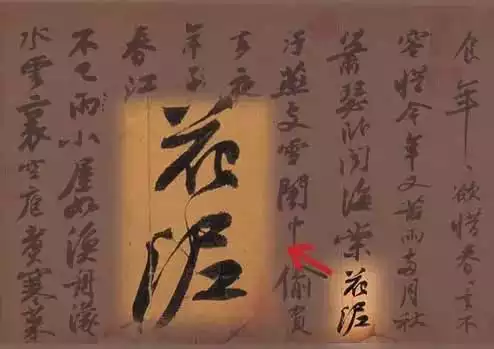 食年〻欲惜春〻去不
容惜今年又苦雨兩月秋
蕭瑟卧聞海棠花泥
汙燕支雪闇中偷負
去夜
年子
春江
花泥
不已雨小屋如漁舟濛
水雲裏空庖煮寒菜